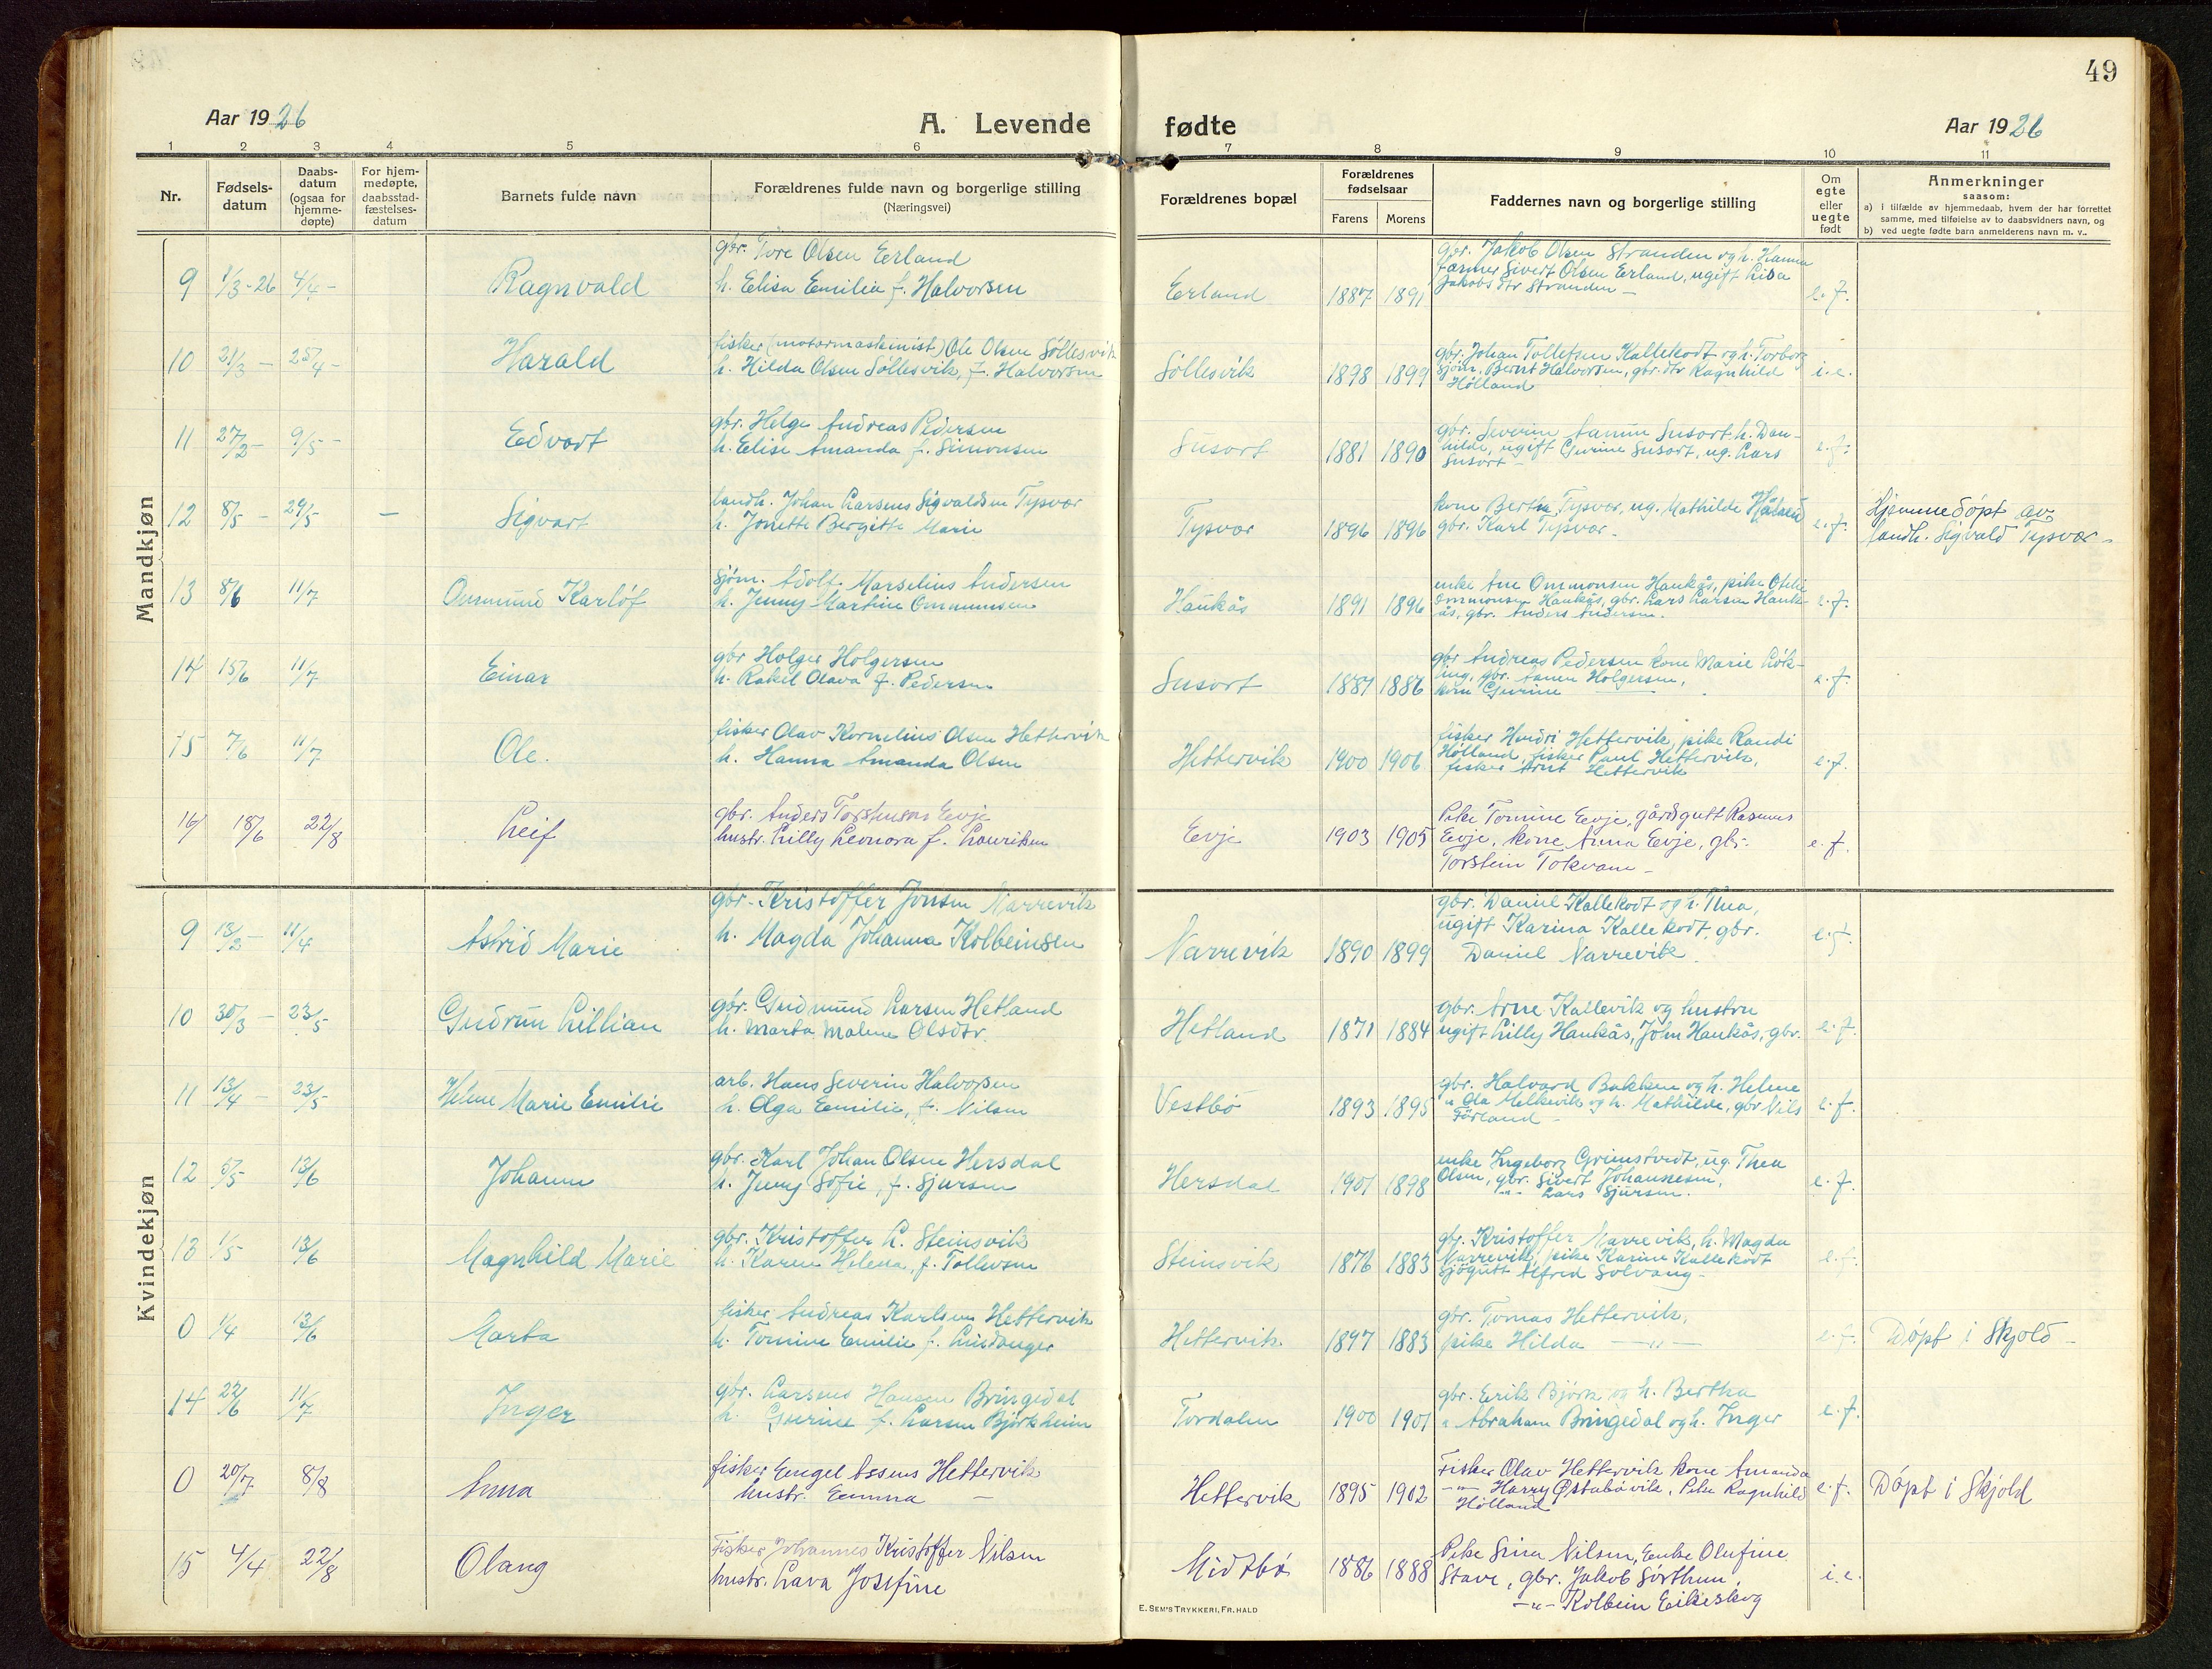 49
Aar 1926
A. Levende fødte
Aar 1926
1 2 3 4 5 6 7 8 9 10 11
Nr.
Fødsels-
datum
Daabs-
datum
(ogsaa for
hjemme-
døpte)
For hjem-
medøpte,
daabsstad-
fæstelses-
datum
Barnets fulde navn
Forældrenes fulde navn og borgerlige stilling
(Næringsvei)
Forældrenes bopæl
Forældrenes
fødselsaar
Farens Morens
Faddernes navn og borgerlige stilling
Om
egte
eller
uegte
født
Anmerkninger
saasom:
a) i tilfælde av hjemmedaab, hvem der har forrettet
samme, med tilføielse av to daabsvidners navn, og
b) ved uegte fødte barn anmelderens navn m. v..
Mandkjøn
9 1/3-26 4/4- Ragnvald
gbr. Tore Olsen Erland
h. Elisa Emilie f. Halvorsen
Erland 1887 1891
gbr. Jakob Olsen Stranden og h. Hanna
farmer Sivert Olsen Erland, ugift Lisa
Jakobs dtr Stranden -
e. f.
10 21/3 - 25/4 - Harald
fisker (motormaskinist) Ole Olsen Søllesvik
h. Hilda Olsen Søllesvik, f. Halvorsen
Søllesvik 1898 1899
gbr. Johan Tollefsen Kallekodt og h. Torborg
sjøm. Bernt Halvorsen, gbr. dtr Ragnhild
Hølland
i. e.
11 27/2 - 9/5 - Edvart
gbr. Helge Andreas Pedersen
h. Elise Amanda f. Simonsen
Susort 1881 1890
gbr. Severin Aanen Susort. h. Dan-
hilde, ugift Gurine Susort, ug. Lars
Susort -
e. f.
12 8/5 - 29/5 - Sigvart
landh. Johan Larsens Sigvaldsen Tysvær
h. Jonette Bergitte Marie
Tysvær 1896 1896
kone Bertha Tysvær, ug. Mathilde
gbr. Karl Tysvær -
e. f.
Hjemmedøpt av
landh. Sigvald Tysvær -
13 8/6 11/7 Ommund Karlöf
sjøm. Adolf Marselius Andersen
h. Jenny Martine Ommundsen
Haukås 1891 1896
enke Ane Ommonsen Haukås, pike Otelie
Ommonsen Haukås, gbr. Lars Larsen Hauk-
ås, gbr. Anders Andersen.
e. f.
14 15/6 11/7 Einar
gbr Holger Holgersen
h. Rakil Olava f. Pedersen
Susort 1887 1886
gbr Andreas Pedersen kone Marie Løk-
ling, gbr. Aanen Holgersen,
kone Gurine
e. f.
15 7/6 11/7 Ole.
fisker Olav Kornelius Olsen Hettervik
h. Hanna Amanda Olsen
Hettervik 1900 1906
fisker Hendri Hettervik, pike Randi
Hølland, fisker Paul Hettervik,
fisker Arnt Hettervik
e. f.
16 18/6 22/8 Leif
gbr. Anders Torstensen Eevje
hustr. Lilly Leonora f. Lauriksen
Eevje 1903 1905
Pike Tomine Eevje, gårdsgutt Rasmus
Eevje, kone Anna Eevje, gbr.
Torstein Tokvam -
e. f.
Kvindekjøn
9 13/2 - 11/4 Astrid Marie
gbr. Kristoffer Jonsen Narrevik
h. Magda Johanna Kolbeinsen
Narrevik 1890 1899
gbr. Daniel Kallekodt og h. Thea,
ugift Karina Kallekodt, gbr.
Daniel Narrevik.
e. f.
10 30/3 - 23/5 Gudrun Lillian
gbr. Gudmund Larsen Hetland
h. Marta Malene Olsdtr.
Hetland 1871 1884
gbr. Arne Kallevik og hustru
ugift Lilly Haukås, John Haukås, gbr.
e. f.
11 13/4 - 23/5 Helene Marie Emilie
arb. Hans Severin Halvorsen
h. Olga Emilie, f. Nilsen
Vestbö 1893 1895
gbr. Halvard Bakken og h. Helene
" Ola Melkevik og h. Mathilde, gbr Nils
Förland -
e. f.
12 5/5 13/6 Johanne
gbr. Karl Johan Olsen Hersdal
h. Jenny Sofie, f. Sjursen
Hersdal 1901 1898
enke Ingeborg Grimstvedt, ug. Thea
Olsen, gbr. Sivert Johannesen,
-"- Lars Sjursen.
e. f.
13 1/5 13/6 Magnhild Marie
gbr. Kristoffer L. Steinsvik
h. Karen Helena, f. Tollevsen
Steinsvik 1876 1883
gbr. Kristoffer Narrevik, h. Magda
Narrevik, pike Karine Kallekodt
sjøgutt Alfred Solvang -
e. f.
0 1/4 13/6 Marta
fisker Andreas Karlsen Hettervik
h. Tomine Emilie f. Lindanger
Hettervik. 1897 1883
gbr. Tomas Hettervik,
pike Hilda -"-
e. f.
Døpt i Skjold -
14 22/6 11/7 Inger
gbr. Larsens Hansen Bringedal
h. Gurine f. Larsen Björkheim
Tordalen 1900 1901
gbr. Erik Bjørk og h. Bertha
" Abraham Bringedal og h. Inger
e. f.
0 20/7 8/8 Anna
fisker Engel Assens Hettervik
hustr. Emma -
Hettervik 1895 1902
Fisker Olav Hettervik kone Amanda
-"- Harry Østabøvik, Pike Ragnhild
Hölland
e. f.
Døpt i Skjold
15 4/4 22/8 Olaug
Fisker Johannes Kristoffer Nilsen
hustr. Lava Josefine
Midtbø 1886 1888
Pike Sina Nilsen, Enke Olufine
Stave, gbr. Jakob Sörthun,
-"- Kolbein Eikeskog
i. e.
E. SEM'S TRYKKERI, FR.HALD